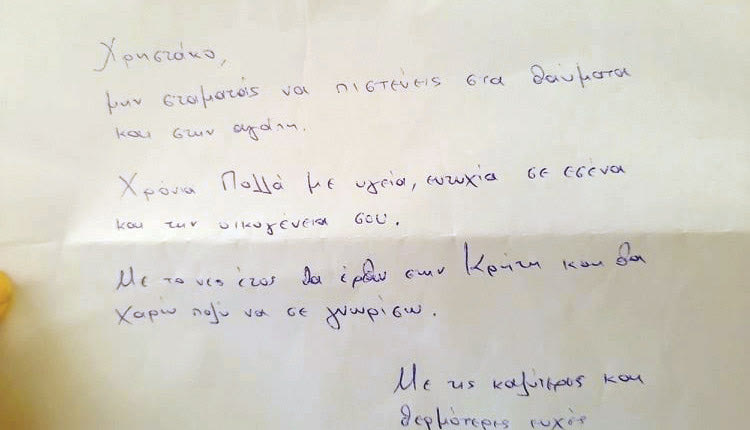 Χρηστάκο,
μην σταματάς να πιστεύεις στα θαύματα
και στην αγάπη.
Χρόνια Πολλά με υγεία, ευτυχία σε εσένα
και την οικογένεια σου.
Με το νέο έτος θα έρθω στην Κρήτη και θα
χαρώ πολύ να σε γνωρίσω.
Με τις καλύτερες και
θερμότερες ευχές